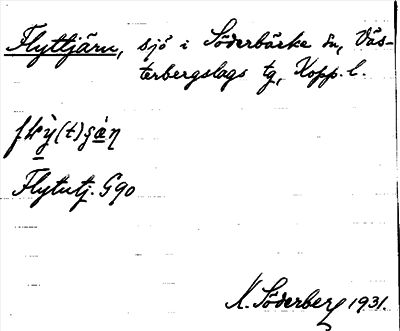 Flyttjärn, sjö i Söderbärke sn,Väs-
terbergslags tg, Kopp. l.
Flytutj. G90
K. Söderberg 1931.